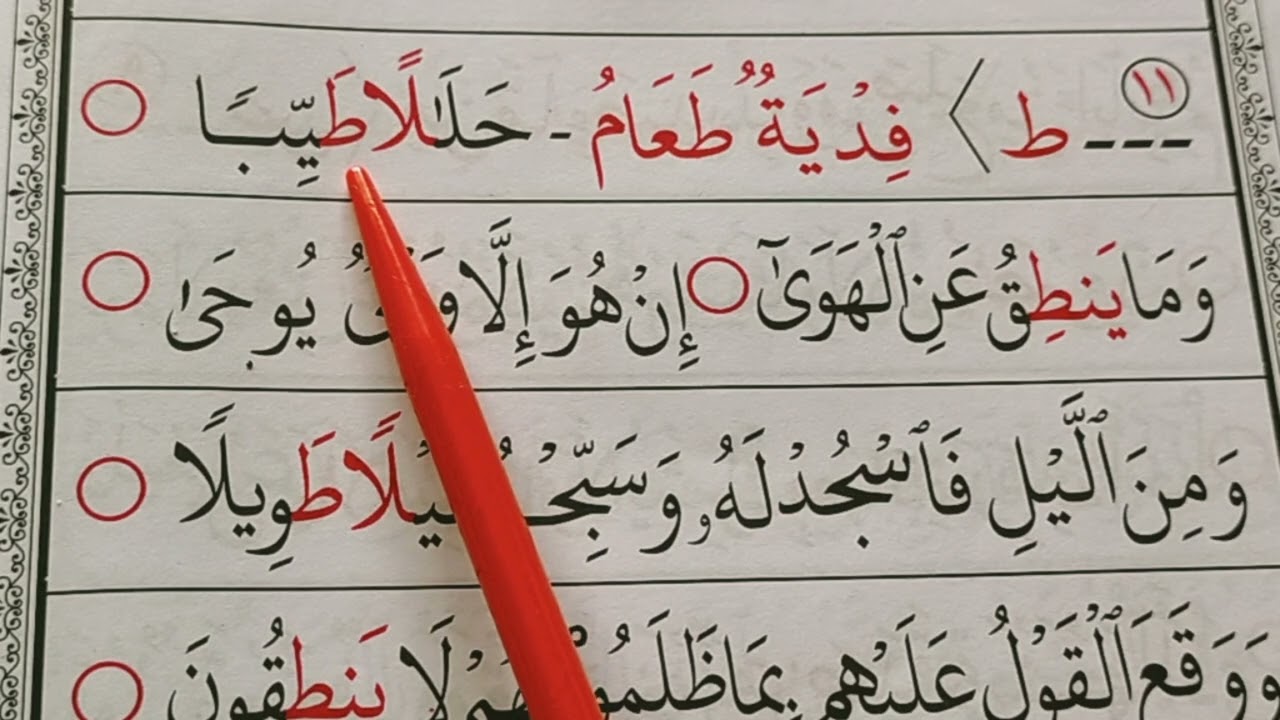 ١١ --- ط〉 فِدْيَةٌ طَعَامُ - حَلَٰلًا طَيِّبًا
وَمَا يَنطِقُ عَنِ ٱلْهَوَىٰٓ إِنْ هُوَ إِلَّا يُوحَىٰ
وَمِنَ ٱلَّيْلِ فَٱسْجُدْ لَهُۥ وَسَبِّحْ طَوِيلًا
وَوَقَعَ ٱلْقَوْلُ عَلَيْهِم بِمَا ظَلَمُوا۟ لَا يَنطِقُونَ